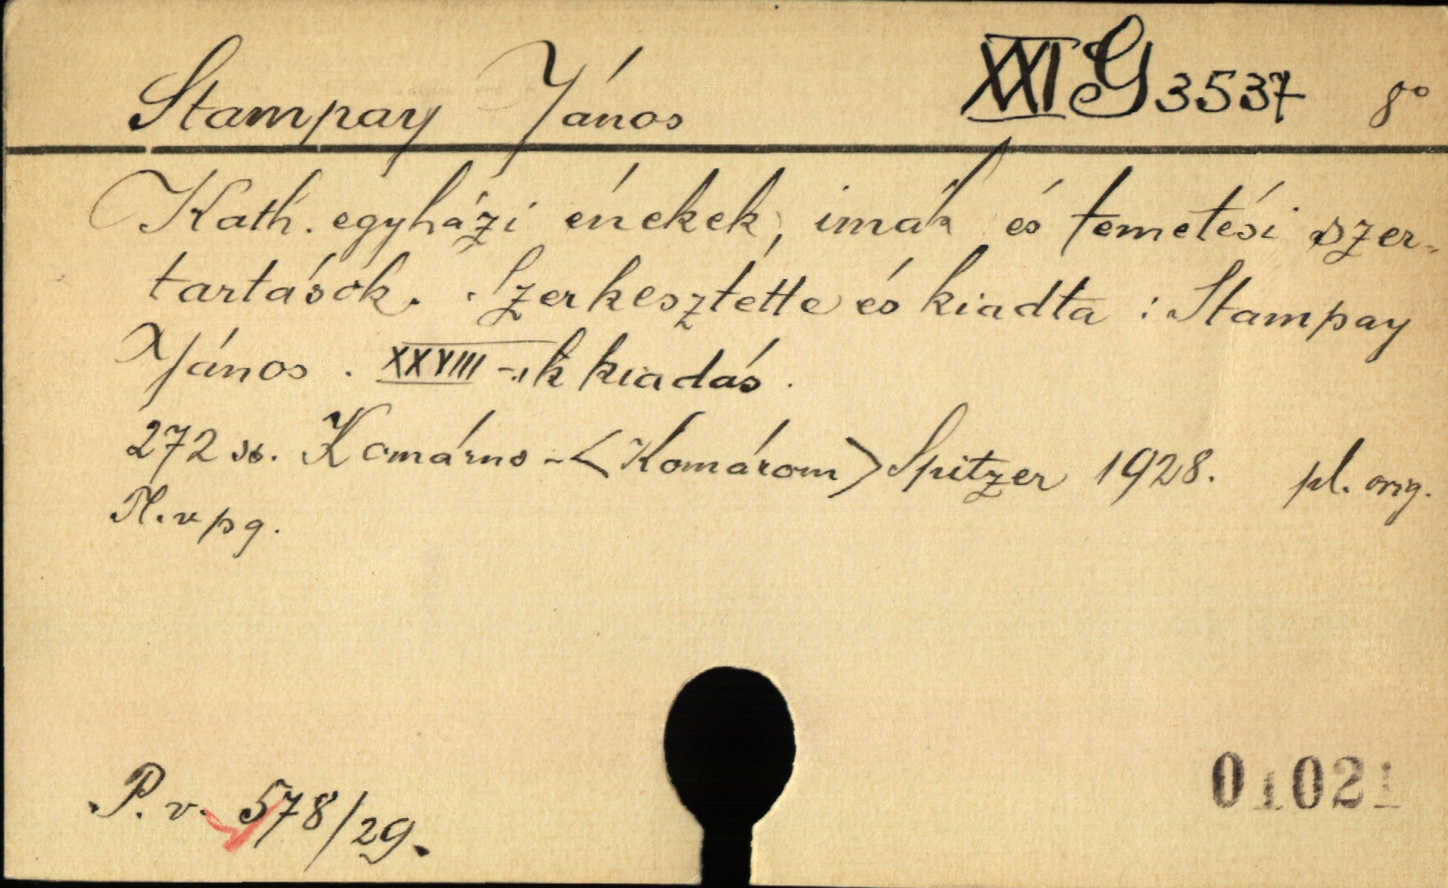 Stampay János XXI G 3537 8°
Kath. egyházi énekek, imák és temetési szer-
tartások. Szerkesztette és kiadta : Stampay
János . XXVIII-ik kiadás .
272 ss. Komárno - <Komárom> Spitzer 1928. pl. orig.
P. v. 578/29.
01021